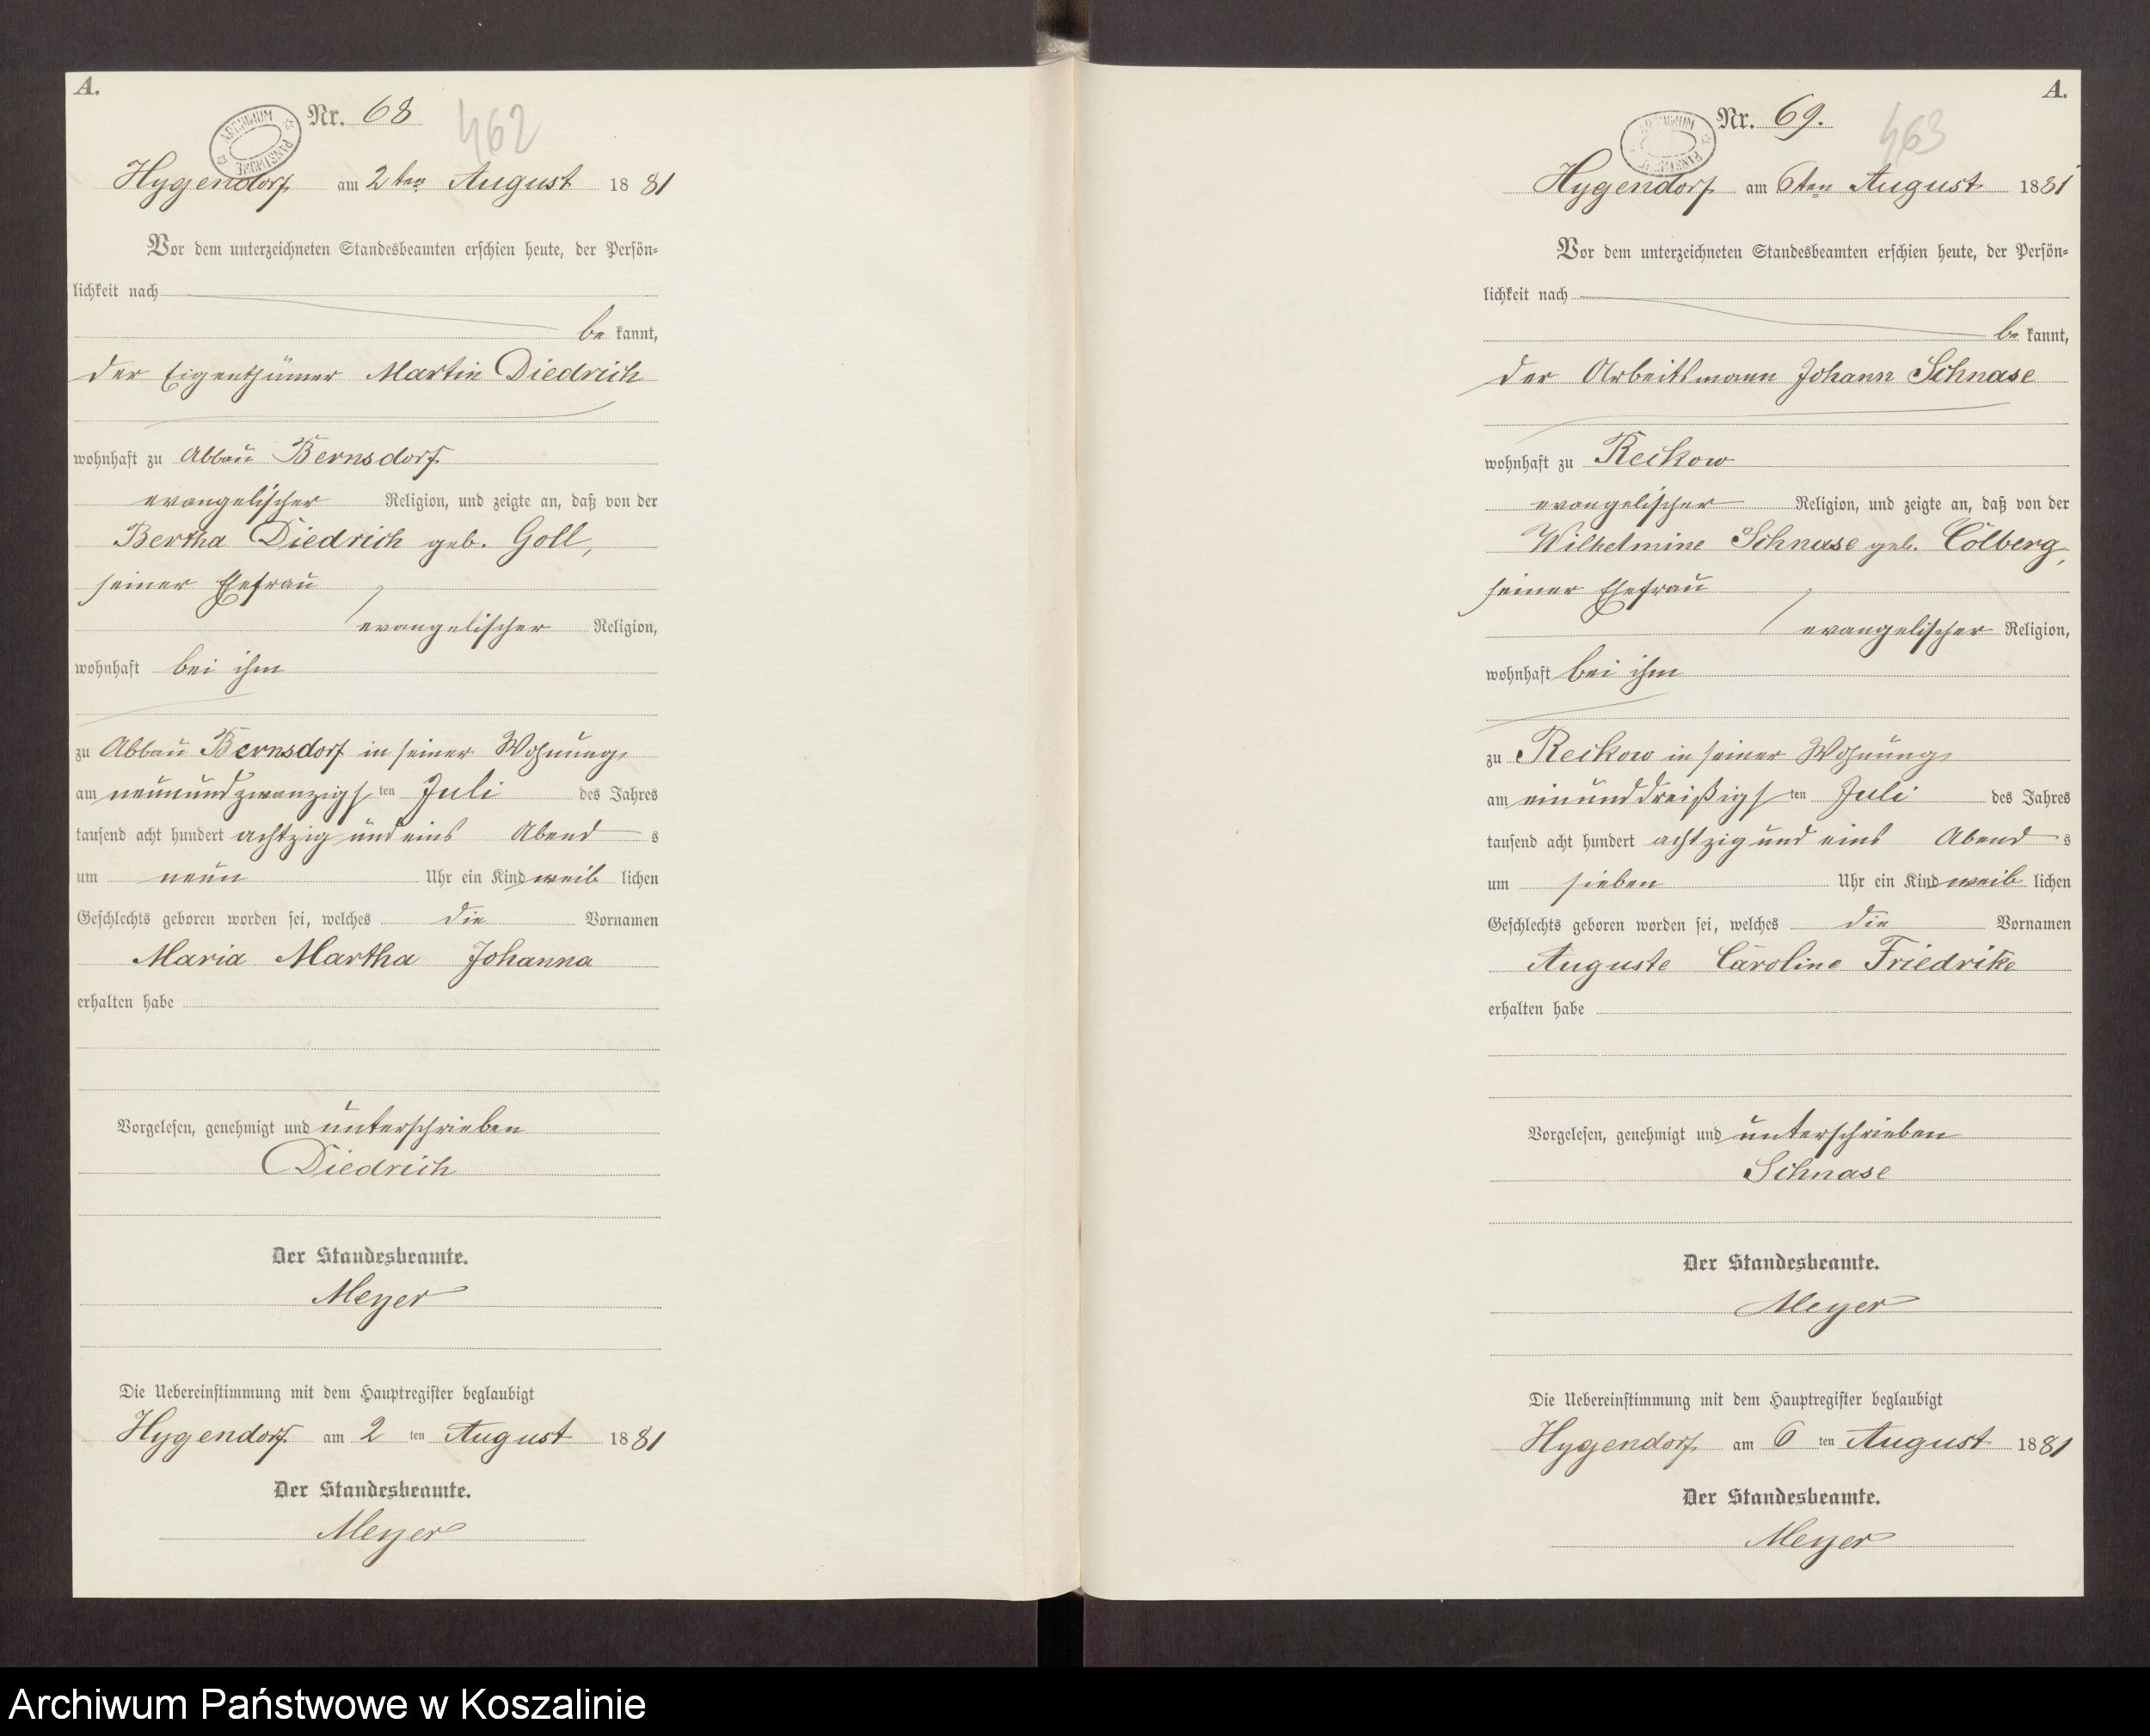 A.
Nr. 68
462
ARCHIWUM PAŃSTWOWE
Hygendorf am 2ten August 1881
Vor dem unterzeichneten Standesbeamten erschien heute, der Persön-
lichkeit nach
be kannt,
der Eigenthümer Martin Diedrich
wohnhaft zu Abbau Bernsdorf
evangelischer Religion, und zeigte an, daß von der
Bertha Diedrich geb. Goll,
seiner Ehefrau
evangelischer Religion,
wohnhaft bei ihm
zu Abbau Bernsdorf in seiner Wohnung
am neunundzwanzigs ten Juli des Jahres
tausend acht hundert achtzig und eins Abend s
um neun Uhr ein Kind weib lichen
Geschlechts geboren worden sei, welches die Vornamen
Maria Martha Johanna
erhalten habe
Vorgelesen, genehmigt und unterschrieben
Diedrich
Der Standesbeamte.
Meyer
Die Uebereinstimmung mit dem Hauptregister beglaubigt
Hygendorf am 2 ten August 1881
Der Standesbeamte.
Meyer
A.
Nr. 69.
463
ARCHIWUM PAŃSTWOWE
Hygendorf am 6ten August 1881
Vor dem unterzeichneten Standesbeamten erschien heute, der Persön-
lichkeit nach
be kannt,
der Arbeitsmann Johann Schnase
wohnhaft zu Reckow
evangelischer Religion, und zeigte an, daß von der
Wilhelmine Schnase geb. Cölberg,
seiner Ehefrau
evangelischer Religion,
wohnhaft bei ihm
zu Reckow in seiner Wohnung
am einunddreißigs ten Juli des Jahres
tausend acht hundert achtzig und eins Abend s
um sieben Uhr ein Kind weib lichen
Geschlechts geboren worden sei, welches die Vornamen
Auguste Caroline Friedrike
erhalten habe
Vorgelesen, genehmigt und unterschrieben
Schnase
Der Standesbeamte.
Meyer
Die Uebereinstimmung mit dem Hauptregister beglaubigt
Hygendorf am 6 ten August 1881
Der Standesbeamte.
Meyer
Archiwum Państwowe w Koszalinie